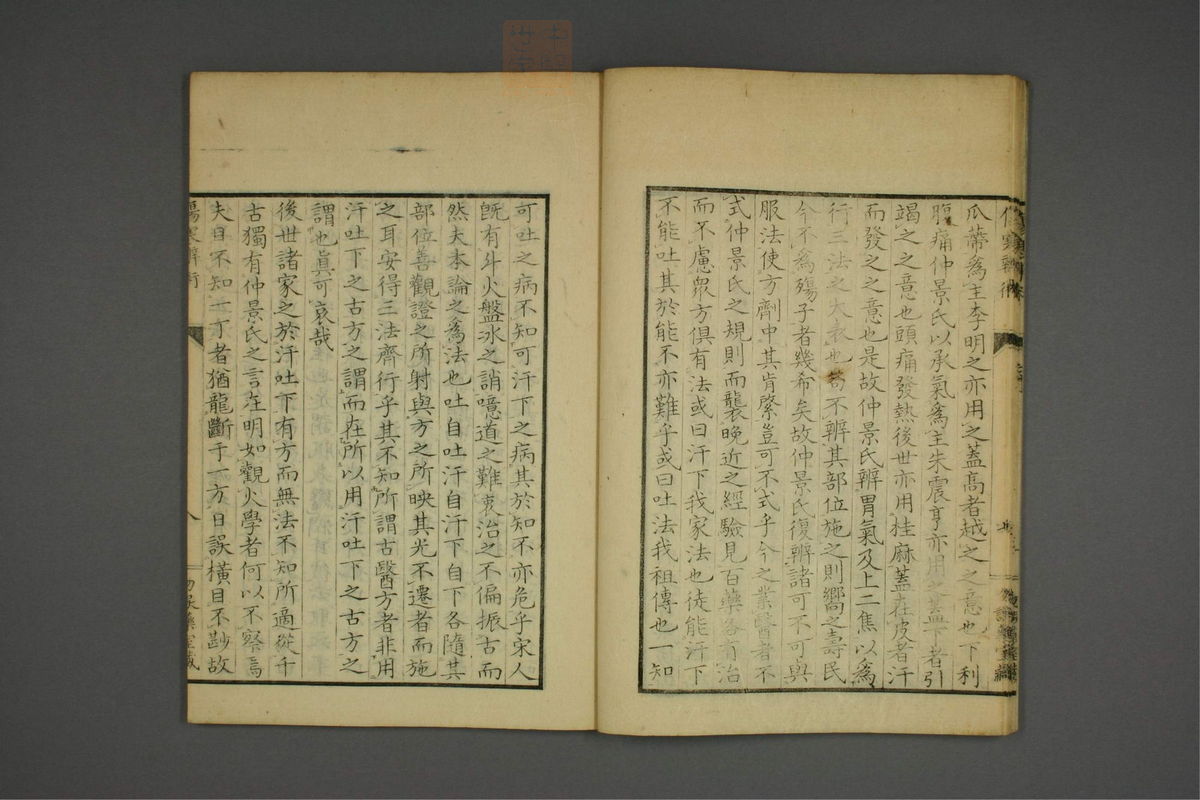 傷寒辨術
瓜蔕為主李明之亦用之蓋高者越之之意也下利
腹痛仲景氏以承氣為主朱震亨亦用之蓋下者引
竭之之意也頭痛發熱後世亦用桂麻蓋在皮者汗
而發之之意也是故仲景氏辨胃氣及上二焦以為
行三法之大表也苟不辨其部位施之則嚮之壽民
今不為殤子者幾希矣故仲景氏復辨諸可不可與
服法使方劑中其肯綮豈可不式乎今之業醫者不
式仲景氏之規則而襲晚近之經驗見百藥各有治
而不慮眾方俱有法或曰汗下我家法也徒能汗下
不能吐其於能不亦難乎或曰吐法我祖傳也一知
可吐之病不知可汗下之病其於知不亦危乎宋人
既有斗火盤冰之誚噫道之難衷治之不偏振古而
然夫本論之為法也吐自吐汗自汗下自下各隨其
部位善觀證之所射與方之所映其光不遷者而施
之耳安得三法齊行乎其不知所謂古醫方者非用
汗吐下之古方之謂而在所以用汗吐下之古方之
謂也真可哀哉
後世諸家之於汗吐下有方而無法不知所適從千
古獨有仲景氏之言在明如觀火學者何以不察焉
夫目不知一丁者猶龍斷于一方日誤橫目不尠故
傷寒辨術
八